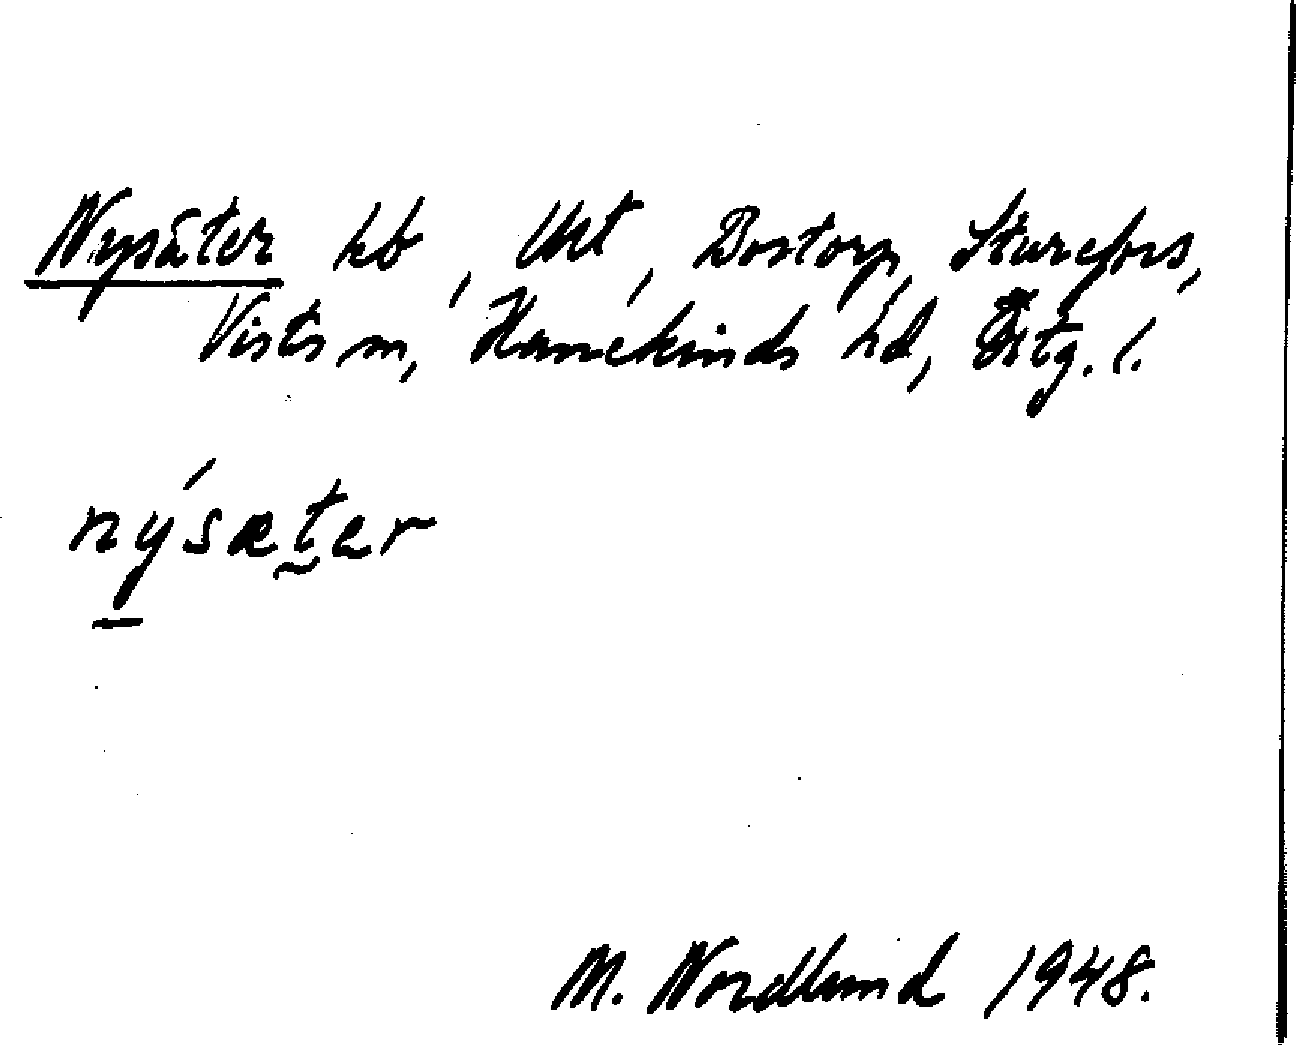 Nysäter hb, Utt, Bostorp, Sturefors,
Vists sn, Hanekinds hd, Östg. l.
nýsæter
M. Nordlund 1948.